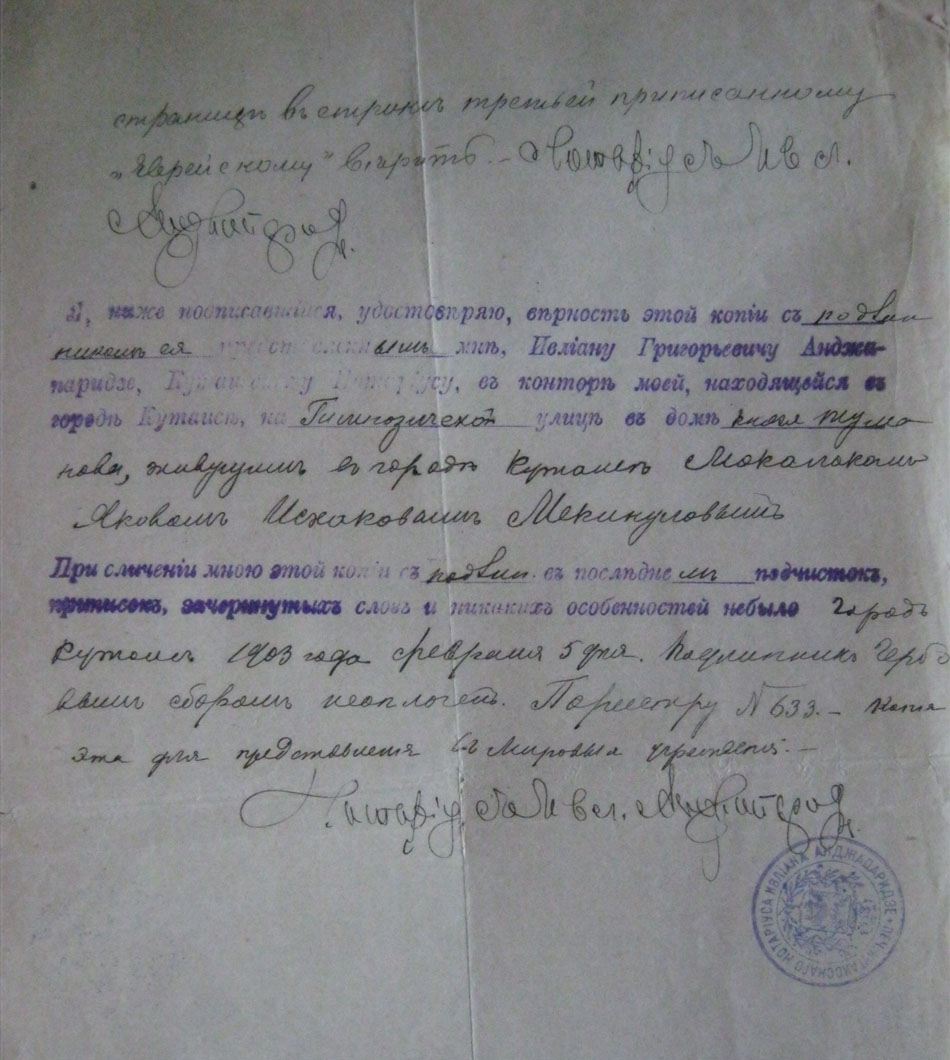 страницѣ въ строкѣ третьей приписанному
„Еврейскому" вѣрить. – Нотаріусъ Ивл.
Анджапарид.
Я, ниже подписавшійся, удостовѣряю, вѣрность этой копіи съ подлин
никомъ ея представленнымъ мнѣ, Ивліану Григорьевичу Анджа-
паридзе, Кутаисскому Нотаріусу, въ конторѣ моей, находящейся въ
городѣ Кутаисѣ, на Гимназической улицѣ въ домѣ князя Тума
нова, живущимъ въ городѣ Кутаисѣ
Яковомъ Исхаковымъ
При сличеніи мною этой копіи съ подлин. въ послѣднемъ подчистокъ,
приписокъ, зачеркнутыхъ словъ и никакихъ особенностей небыло Городъ
Кутаисъ 1903 года февраля 5 дня. Подлинникъ Гербо
вымъ сборомъ неоплоченъ. Пореестру N 633. – Копія
эта для представленія въ Мировыя учрежденія. –
Нотаріусъ Ивл. Анджапарид.
ПЕЧ. КУТАИССКАГО НОТАРІУСА ИВЛІАНА АНДЖАПАРИДЗЕ